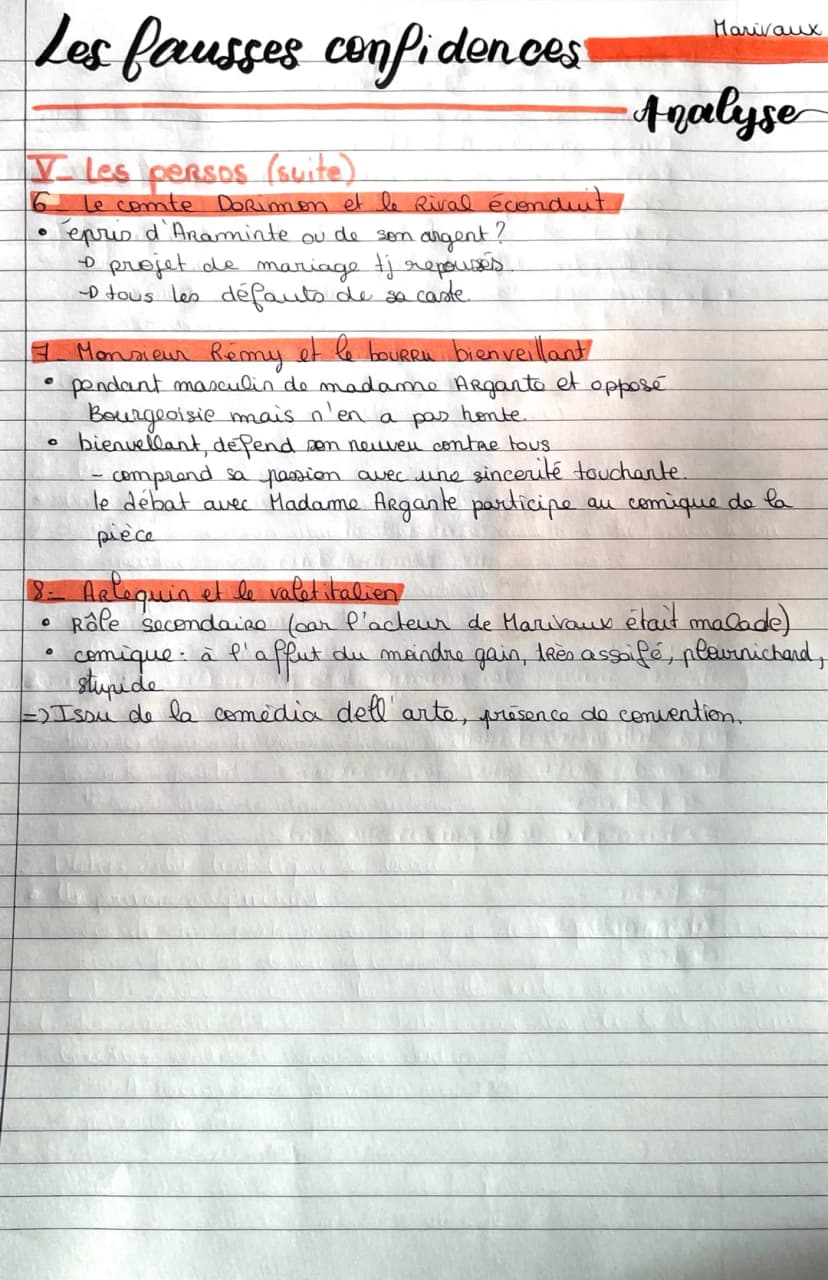 Marivaux
Les fausses confidences
Analyse
V- Les persos (suite)
6- Le comte Dorimon et le Rival éconduit
• épris d'Araminte ou de son argent ?
→ projet de mariage tj repoussés.
→ tous les défauts de sa caste.
7- Monsieur Rémy et le bourru bienveillant
• pendant masculin de madame Argante et opposé
Bourgeoisie mais n'en a pas honte.
• bienvellant, défend son neuveu contre tous
- comprend sa passion avec une sincerité touchante.
le débat avec Madame Argante participe au comique de la
pièce
8- Arlequin et le valet italien
• Rôle secondaire (car l'acteur de Marivaux était malade)
• comique : à l'affut du moindre gain, très assoifé, pleurnichard,
stupide
=> Issu de la comédia dell'arte, présence de convention.